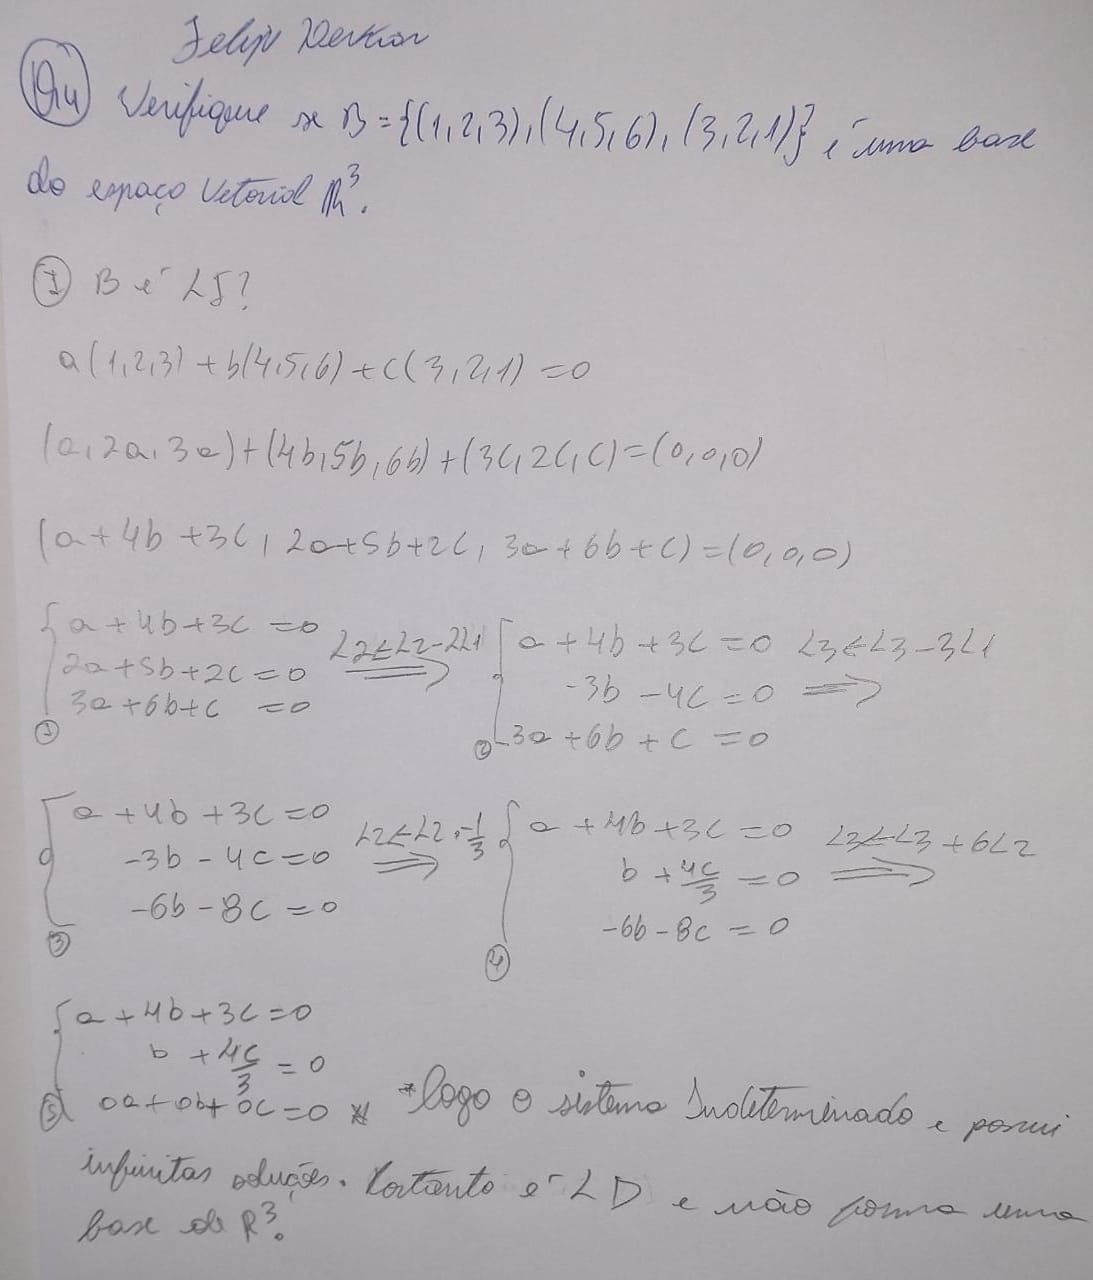 Felipe
Q4 Verifique se B={(1,2,3),(4,5,6),(3,2,1)} é uma base
do espaço Vetorial R³.
① B é LI?
a(1,2,3)+b(4,5,6)+c(3,2,1)=0
(a,2a,3a)+(4b,5b,6b)+(3c,2c,c)=(0,0,0)
(a+4b+3c, 2a+5b+2c, 3a+6b+c)=(0,0,0)
{a+4b+3c=0 L2←L2-2L1 {a+4b+3c=0 L3←L3-3L1
2a+5b+2c=0 ⇒ -3b-4c=0 ⇒
3a+6b+c=0 3a+6b+c=0
① ②
{a+4b+3c=0 L2←L2.-1/3 {a+4b+3c=0 L3←L3+6L2
-3b-4c=0 ⇒ b+4c/3=0 ⇒
-6b-8c=0 -6b-8c=0
③ ④
{a+4b+3c=0
b+4c/3=0
⑤ 0a+0b+0c=0 * *logo o sistema Indeterminado e possui
infinitas soluções. Portanto é LD e não forma uma
base de R³.